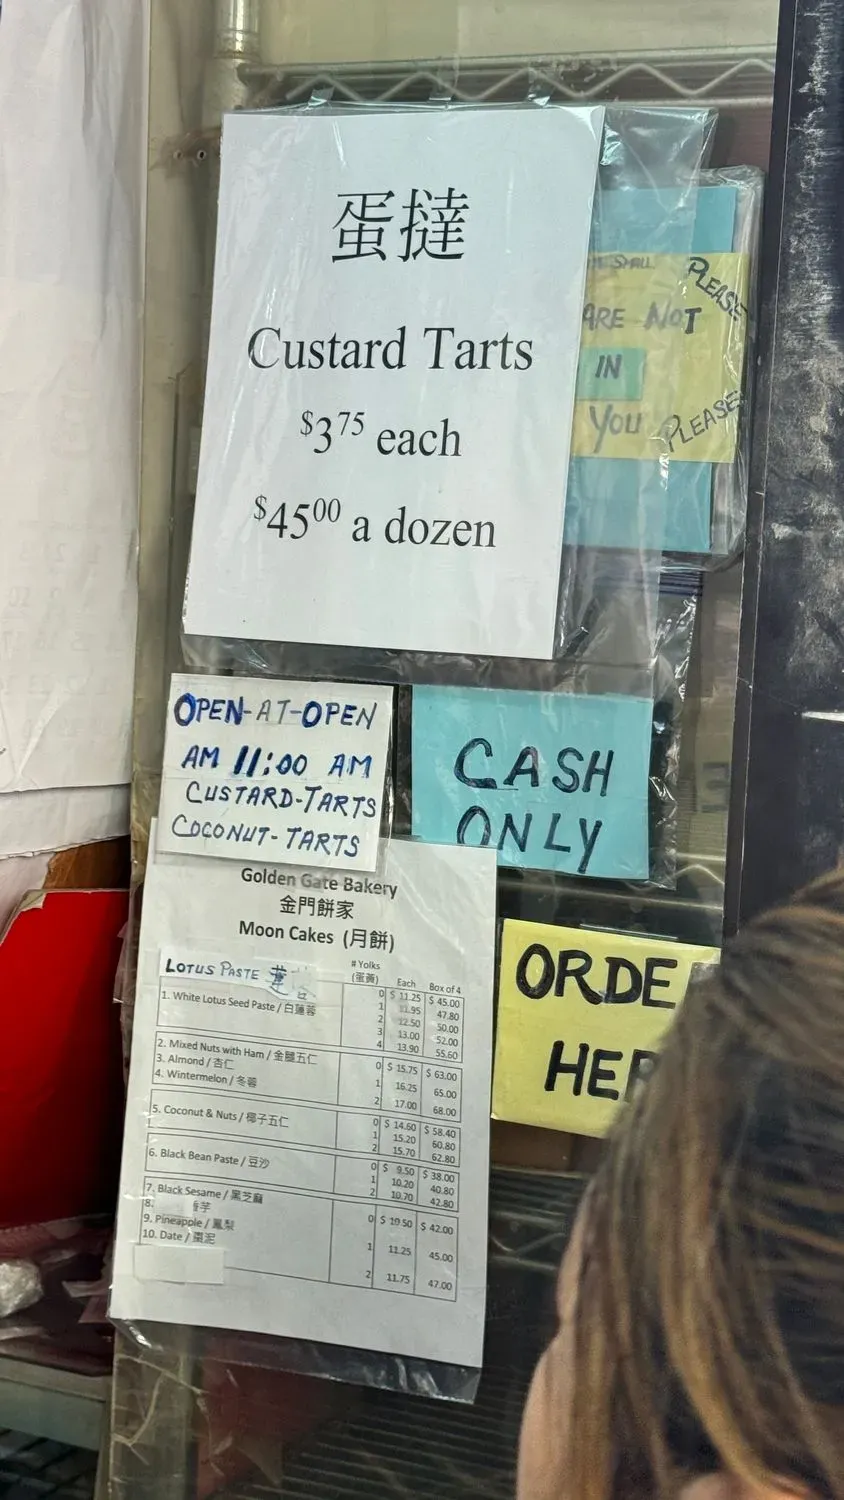 蛋撻
Custard Tarts
$3.75 each
$45.00 a dozen
SMALL PLEASE
ARE NOT
IN
YOU PLEASE
OPEN-AT-OPEN
AM 11:00 AM
CUSTARD-TARTS
COCONUT-TARTS
CASH
ONLY
ORDE
HER
Golden Gate Bakery
金門餅家
Moon Cakes (月餅)
LOTUS PASTE 蓮蓉
# Yolks
(蛋黃) Each Box of 4
1. White Lotus Seed Paste / 白蓮蓉
0 $ 11.25 $ 45.00
1 11.95 47.80
2 12.50 50.00
3 13.00 52.00
4 13.90 55.60
2. Mixed Nuts with Ham / 金腿五仁
3. Almond / 杏仁
4. Wintermelon / 冬蓉
0 $ 15.75 $ 63.00
1 16.25 65.00
2 17.00 68.00
5. Coconut & Nuts / 椰子五仁
0 $ 14.60 $ 58.40
1 15.20 60.80
2 15.70 62.80
6. Black Bean Paste / 豆沙
0 $ 9.50 $ 38.00
1 10.20 40.80
2 10.70 42.80
7. Black Sesame / 黑芝麻
8. 香芋
9. Pineapple / 鳳梨
10. Date / 棗泥
0 $ 10.50 $ 42.00
1 11.25 45.00
2 11.75 47.00